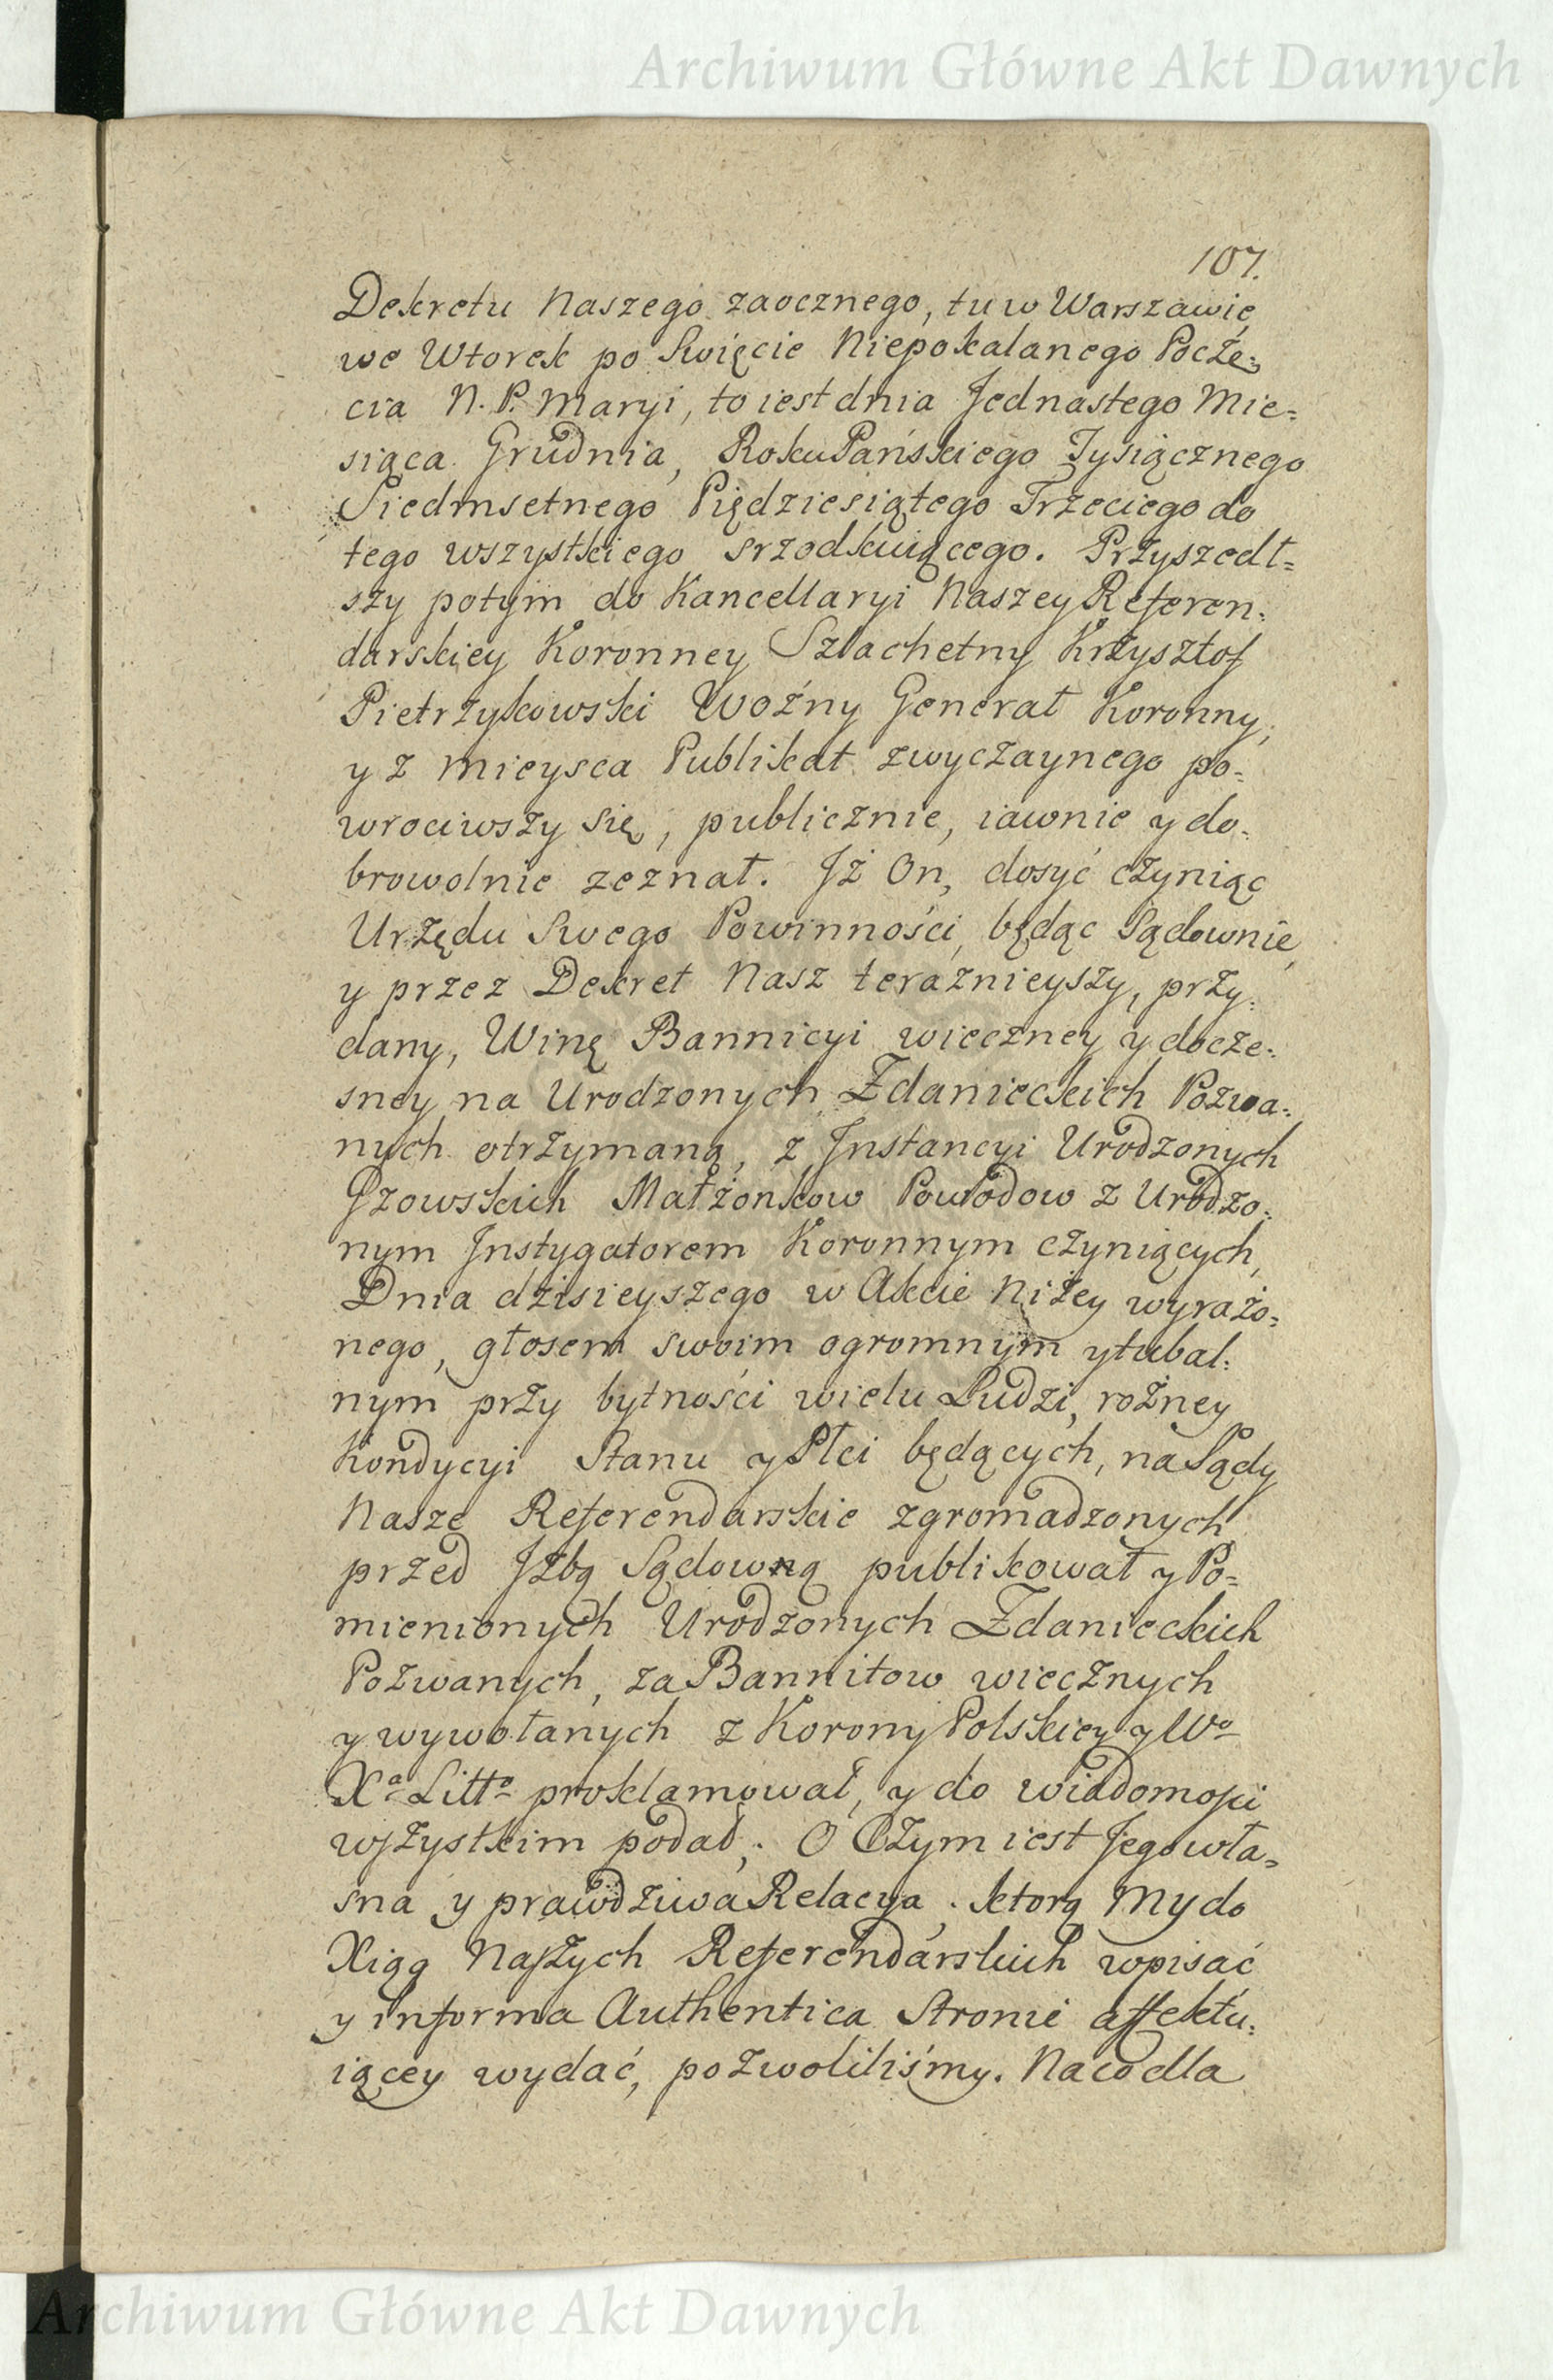 Archiwum Główne Akt Dawnych
107.
Dekretu Naszego zaocznego, tu w Warszawie
we Wtorek po Swięcie Niepokalanego Pocze=
cia N. P. Maryi, to iest dnia Jednastego Mie=
siąca Grudnia, Roku Pańskiego Tysiącznego
Siedmsetnego Piędziesiątego Trzeciego do
tego wszystkiego srzodkuiącego. Przyszedł=
szy potym do Kancellaryi Naszey Referen=
darskiey Koronney Szlachetny Krzysztof
Pietrzykowski Woźny Generał Koronny,
y z mieysca Publikat zwyczaynego po=
wrociwszy się, publicznie, iawnie y do=
browolnie zeznał. Jż On, dosyć czyniąc
Urzędu Swego Powinności, będąc Sądownie,
y przez Dekret Nasz teraznieyszy, przy=
dany, Winę Bannicyi wieczney y docze=
sney na Urodzonych Zdanieckich Pozwa=
nych otrzymaną, z Jnstancyi Urodzonych
Gzowskich Małżonkow Powodow z Urodzo=
nym Jnstygatorem Koronnym czyniących,
Dnia dzisieyszego w Akcie niżey wyrażo=
nego, głosem swoim ogromnym y tubal=
nym przy bytności wielu Ludzi, rożney
Kondycyi Stanu y Płci będących, na Sądy
Nasze Referendarskie zgromadzonych
przed Jzbą Sądowną publikował y Po=
mienionych Urodzonych Zdanieckich
Pozwanych, za Bannitow wiecznych
y wywołanych z Korony Polskiey y Wo
Xa Litto proklamował, y do wiadomości
wszystkim podał; O Czym iest Jego wła=
sna y prawdziwa Relacya, ktorą My do
Xiąg Naszych Referendarskich wpisać
y informa Authentica Stronie affektu=
iącey wydać, pozwoliliśmy. Na co dla
Archiwum Główne Akt Dawnych